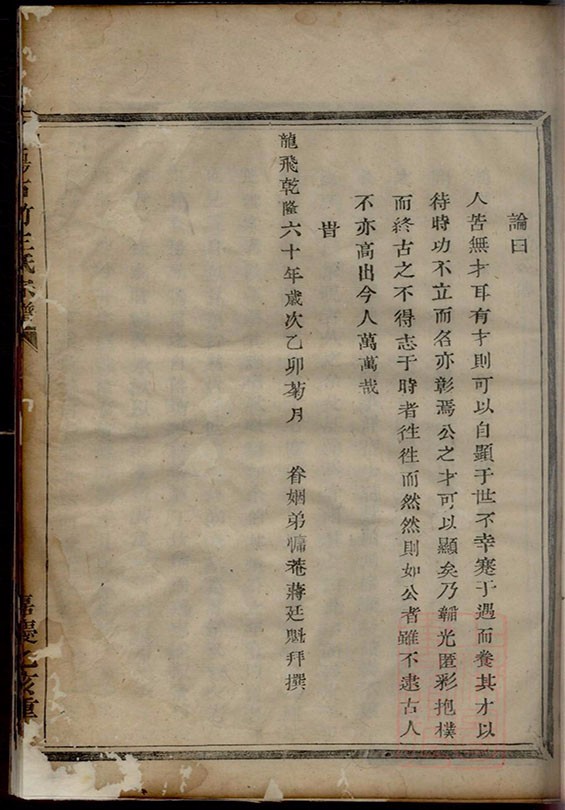 論曰
人苦無才耳有才則可以自顯于世不幸蹇于遇而養其才以
待時功不立而名亦彰焉公之才可以顯矣乃韜光匿彩抱樸
而終古之不得志于時者徃徃而然然則如公者雖不逮古人
不亦高出今人萬萬哉
旹
龍飛乾隆六十年歲次乙卯菊月 眷姻弟慵菴蔣廷魁拜撰
竹王氏宗譜
嘉慶乙亥重